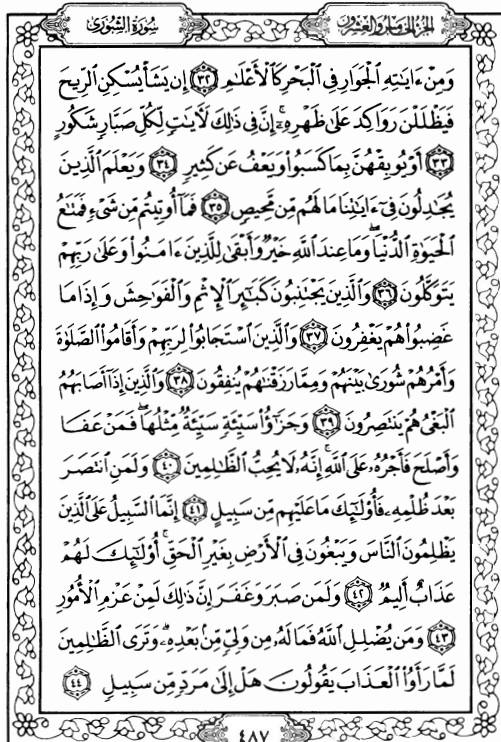 سُورَةُ الشُّورَىٰ الجُزْءُ الخَامِسُ وَالعِشْرُونَ
وَمِنْ ءَايَٰتِهِ ٱلْجَوَارِ فِى ٱلْبَحْرِ كَٱلْأَعْلَٰمِ ٣٢ إِن يَشَأْ يُسْكِنِ ٱلرِّيحَ
فَيَظْلَلْنَ رَوَاكِدَ عَلَىٰ ظَهْرِهِۦٓ ۚ إِنَّ فِى ذَٰلِكَ لَءَايَٰتٍ لِّكُلِّ صَبَّارٍ شَكُورٍ
٣٣ أَوْ يُوبِقْهُنَّ بِمَا كَسَبُوا۟ وَيَعْفُ عَن كَثِيرٍ ٣٤ وَيَعْلَمَ ٱلَّذِينَ
يُجَٰدِلُونَ فِىٓ ءَايَٰتِنَا مَا لَهُم مِّن مَّحِيصٍ ٣٥ فَمَآ أُوتِيتُم مِّن شَىْءٍ فَمَتَٰعُ
ٱلْحَيَوٰةِ ٱلدُّنْيَا ۖ وَمَا عِندَ ٱللَّهِ خَيْرٌ وَأَبْقَىٰ لِلَّذِينَ ءَامَنُوا۟ وَعَلَىٰ رَبِّهِمْ
يَتَوَكَّلُونَ ٣٦ وَٱلَّذِينَ يَجْتَنِبُونَ كَبَٰٓئِرَ ٱلْإِثْمِ وَٱلْفَوَٰحِشَ وَإِذَا مَا
غَضِبُوا۟ هُمْ يَغْفِرُونَ ٣٧ وَٱلَّذِينَ ٱسْتَجَابُوا۟ لِرَبِّهِمْ وَأَقَامُوا۟ ٱلصَّلَوٰةَ
وَأَمْرُهُمْ شُورَىٰ بَيْنَهُمْ وَمِمَّا رَزَقْنَٰهُمْ يُنفِقُونَ ٣٨ وَٱلَّذِينَ إِذَآ أَصَابَهُمُ
ٱلْبَغْىُ هُمْ يَنتَصِرُونَ ٣٩ وَجَزَٰٓؤُا۟ سَيِّئَةٍ سَيِّئَةٌ مِّثْلُهَا ۖ فَمَنْ عَفَا
وَأَصْلَحَ فَأَجْرُهُۥ عَلَى ٱللَّهِ ۚ إِنَّهُۥ لَا يُحِبُّ ٱلظَّٰلِمِينَ ٤٠ وَلَمَنِ ٱنتَصَرَ
بَعْدَ ظُلْمِهِۦ فَأُو۟لَٰٓئِكَ مَا عَلَيْهِم مِّن سَبِيلٍ ٤١ إِنَّمَا ٱلسَّبِيلُ عَلَى ٱلَّذِينَ
يَظْلِمُونَ ٱلنَّاسَ وَيَبْغُونَ فِى ٱلْأَرْضِ بِغَيْرِ ٱلْحَقِّ ۚ أُو۟لَٰٓئِكَ لَهُمْ
عَذَابٌ أَلِيمٌ ٤٢ وَلَمَن صَبَرَ وَغَفَرَ إِنَّ ذَٰلِكَ لَمِنْ عَزْمِ ٱلْأُمُورِ
٤٣ وَمَن يُضْلِلِ ٱللَّهُ فَمَا لَهُۥ مِن وَلِىٍّ مِّنۢ بَعْدِهِۦ ۗ وَتَرَى ٱلظَّٰلِمِينَ
لَمَّا رَأَوُا۟ ٱلْعَذَابَ يَقُولُونَ هَلْ إِلَىٰ مَرَدٍّ مِّن سَبِيلٍ ٤٤
٤٨٧